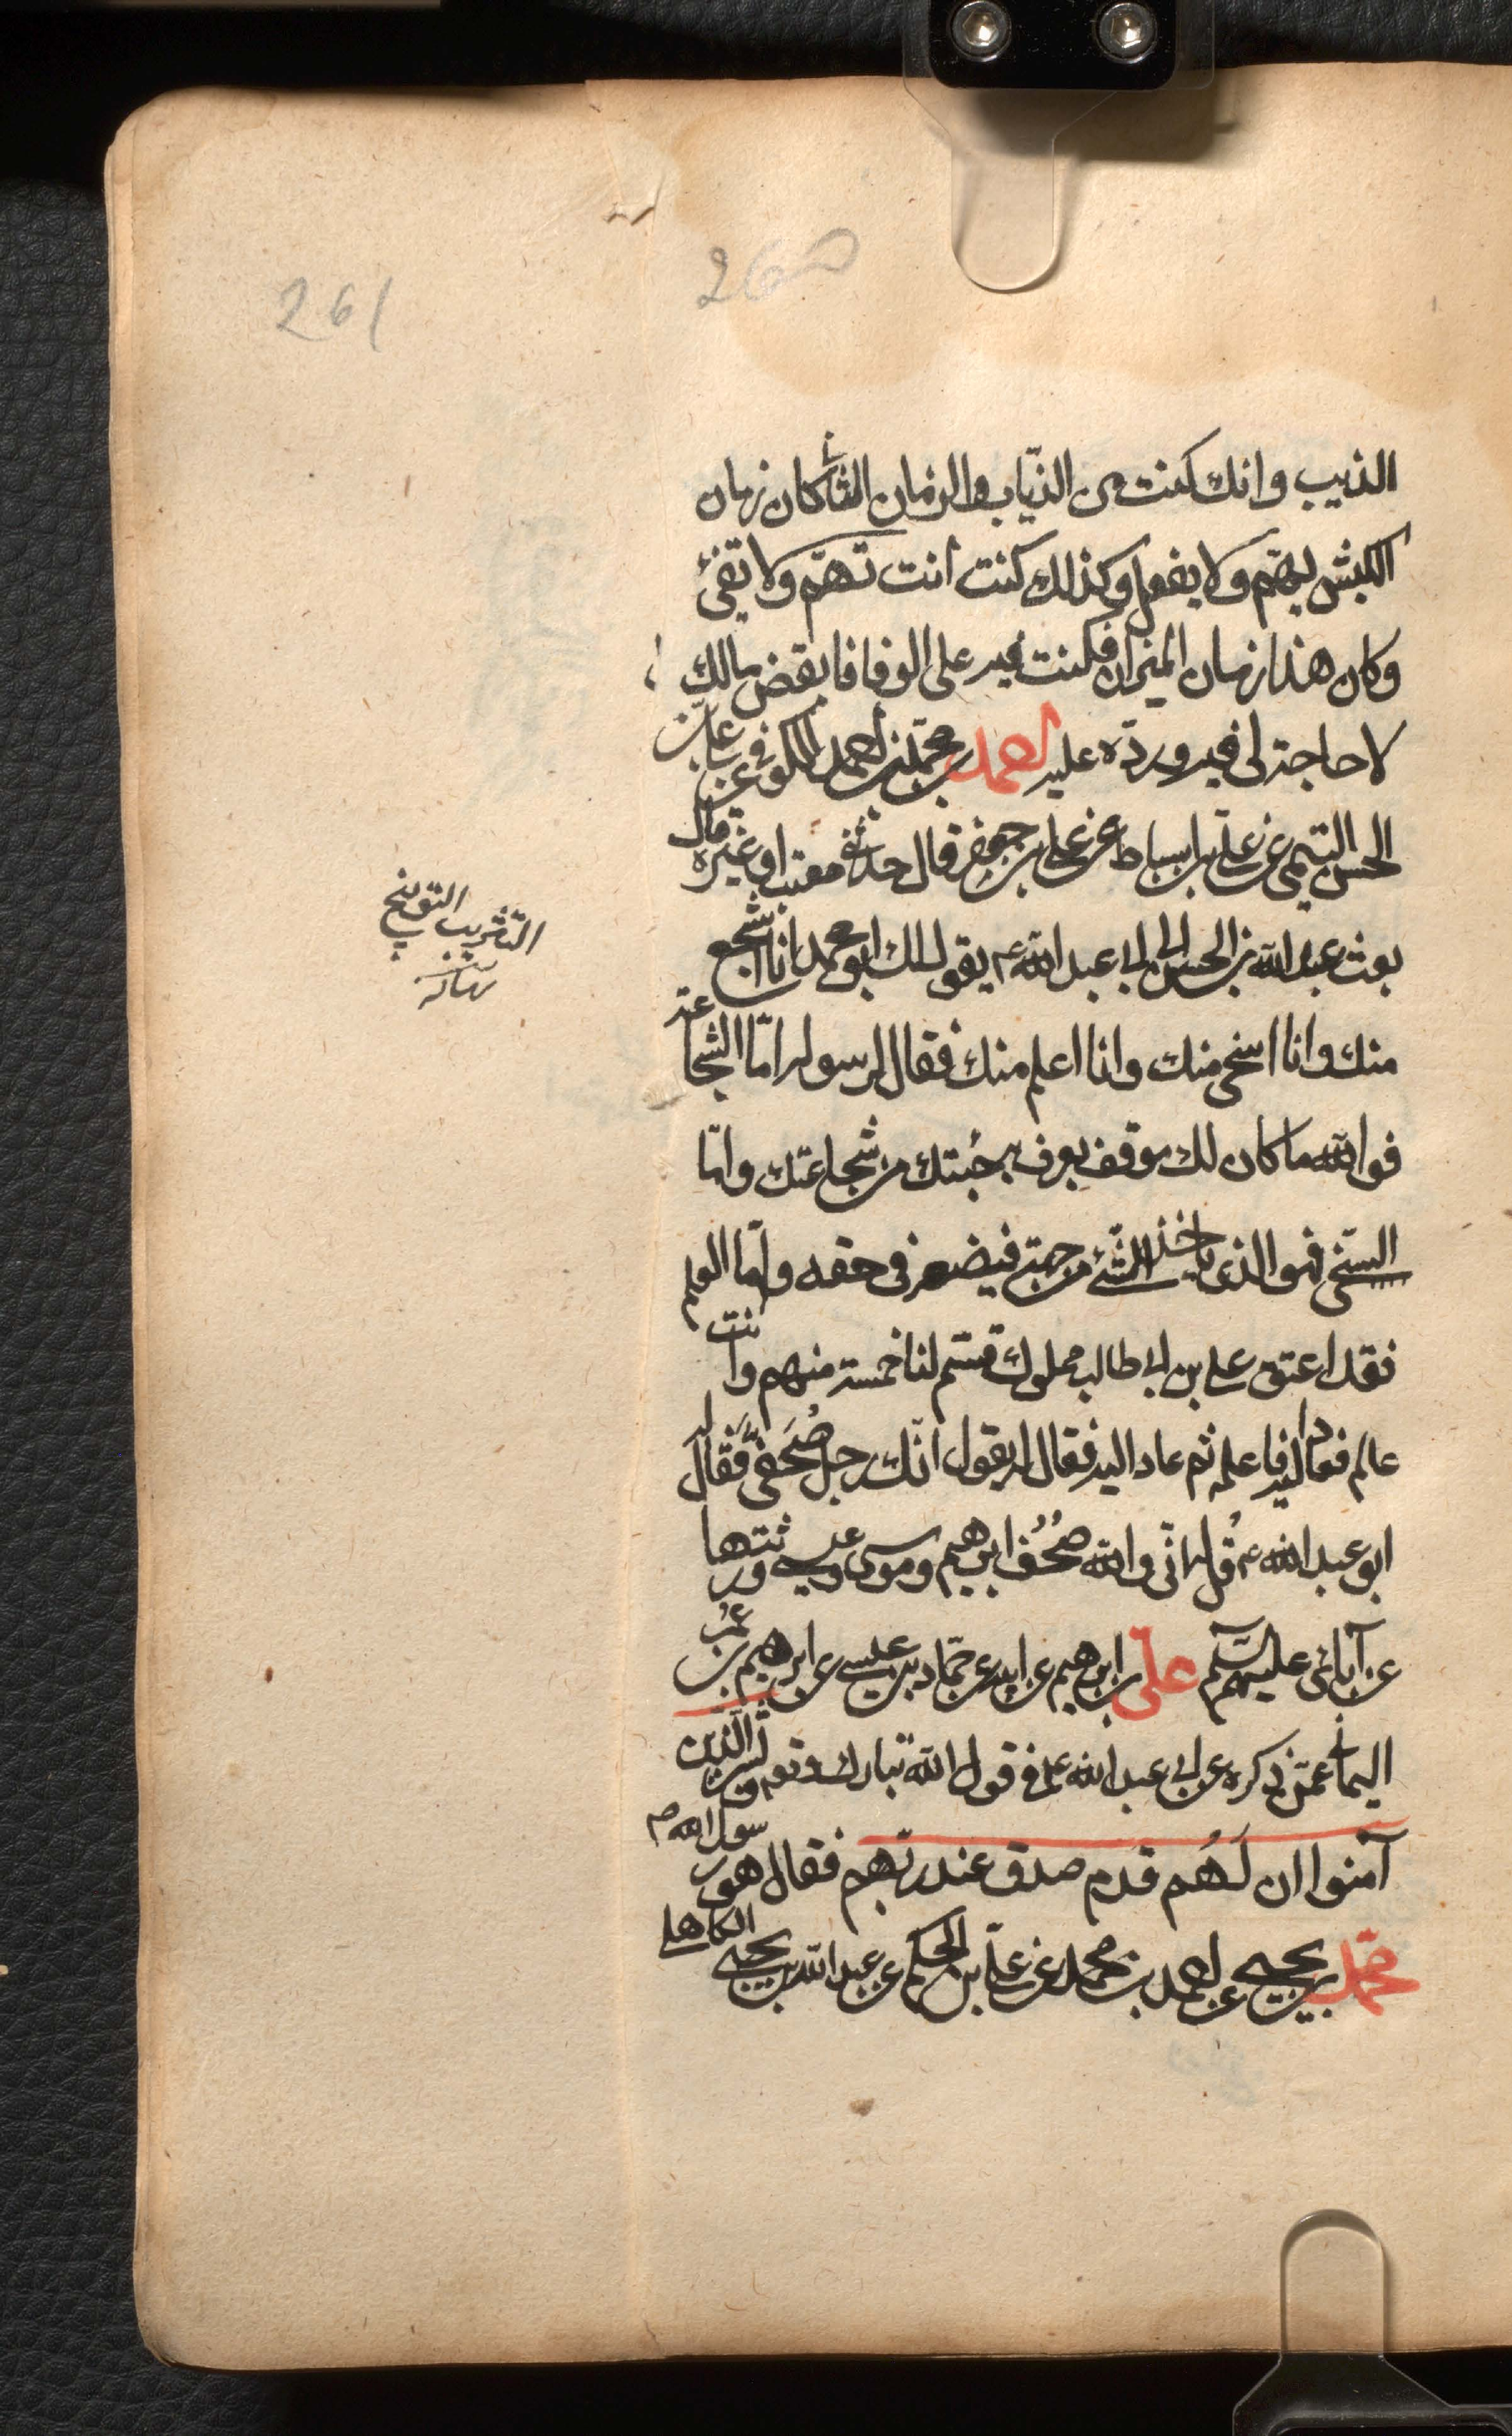 261
260
الذئب وانك كنت من الذئاب والزمان الثانى كان زمان
الكبش يهمّ ولا يفعل وكذلك كنت انت تهمّ ولا تفى
وكان هذا زمان الميزان فكنت فيه على الوفا فاقبض مالك
لا حاجة لى فيه وردّه عليه احمد بن محمّد بن احمد الكوفى عن على بن
الحسن التيمى عن على بن اسباط عن على بن جعفر قال حدثنى معتب او غيره قال
بعث عبد الله بن الحسن الى ابى عبد الله ع يقول لك ابو محمد انا اشجع
منك وانا اسخى منك وانا اعلم منك فقال لرسوله امّا الشجاعة
فوالله ما كان لك موقف يعرف به جُبنك من شجاعتك وامّا
السّخى فهو الذى ياخذ الشّئ من جهته فيضعه فى حقه وامّا العلم
فقد اعتق على بن ابى طالب مملوك فسّم لنا خمسة منهم وانت
عالم فعاد اليه فاعلمه ثم عاد اليه فقال له يقول انّك رجل صُحَفىّ فَقَال له
ابو عبد الله ع قُل له انّى والله صُحُف ابرهيم وموسى وعيسى ورثتها
عن آبائى عليهم السّلم على بن ابرهيم عن ابيه عن حمّاد بن عيسى عن ابرهيم بن عُمَر
اليمانى عمّن ذكره عن ابى عبد الله ع فى قول الله تبارك وتع وبَشّر الّذين
آمنوا ان لَهُم قدم صدق عند ربّهم فقال هو رسول الله ص
محمّد بن يحيى عن احمد بن محمد عن على بن الحكم عن عبد الله بن يحيى الكاهلى
التثريب التوبيخ
نهاية